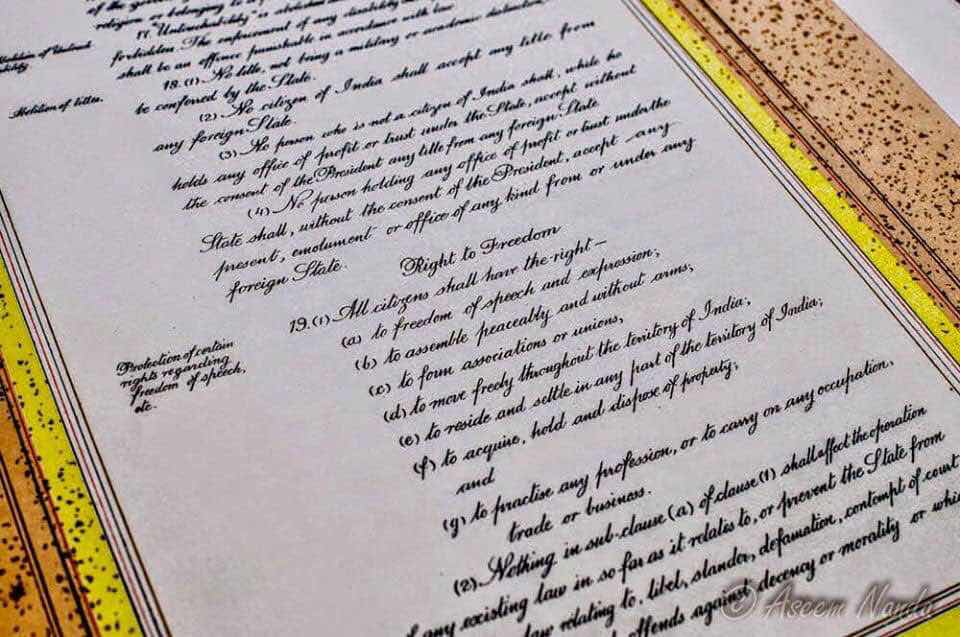 of the
religion or belonging to
17. "Untouchability" is abolished
forbidden. The enforcement of any disability
shall be an offence punishable in accordance with law.
18. (1) No title, not being a military or academic distinction,
be conferred by the State.
(2) No citizen of India shall accept any title from
any foreign State.
(3) No person who is not a citizen of India shall, while he
holds any office of profit or trust under the State, accept without
the consent of the President any title from any foreign State.
(4) No person holding any office of profit or trust under the
State shall, without the consent of the President, accept any
present, emolument or office of any kind from or under any
foreign State.
Abolition of titles.
Right to Freedom
19. (1) All citizens shall have the right —
(a) to freedom of speech and expression;
(b) to assemble peaceably and without arms;
(c) to form associations or unions;
(d) to move freely throughout the territory of India;
(e) to reside and settle in any part of the territory of India;
(f) to acquire, hold and dispose of property;
and
(g) to practise any profession, or to carry on any occupation,
trade or business.
Protection of certain
rights regarding
freedom of speech,
etc.
(2) Nothing in sub-clause (a) of clause (1) shall affect the operation
of any existing law in so far as it relates to, or prevent the State from
law relating to, libel, slander, defamation, contempt of court
offends against decency or morality or which
© Aseem Nanda